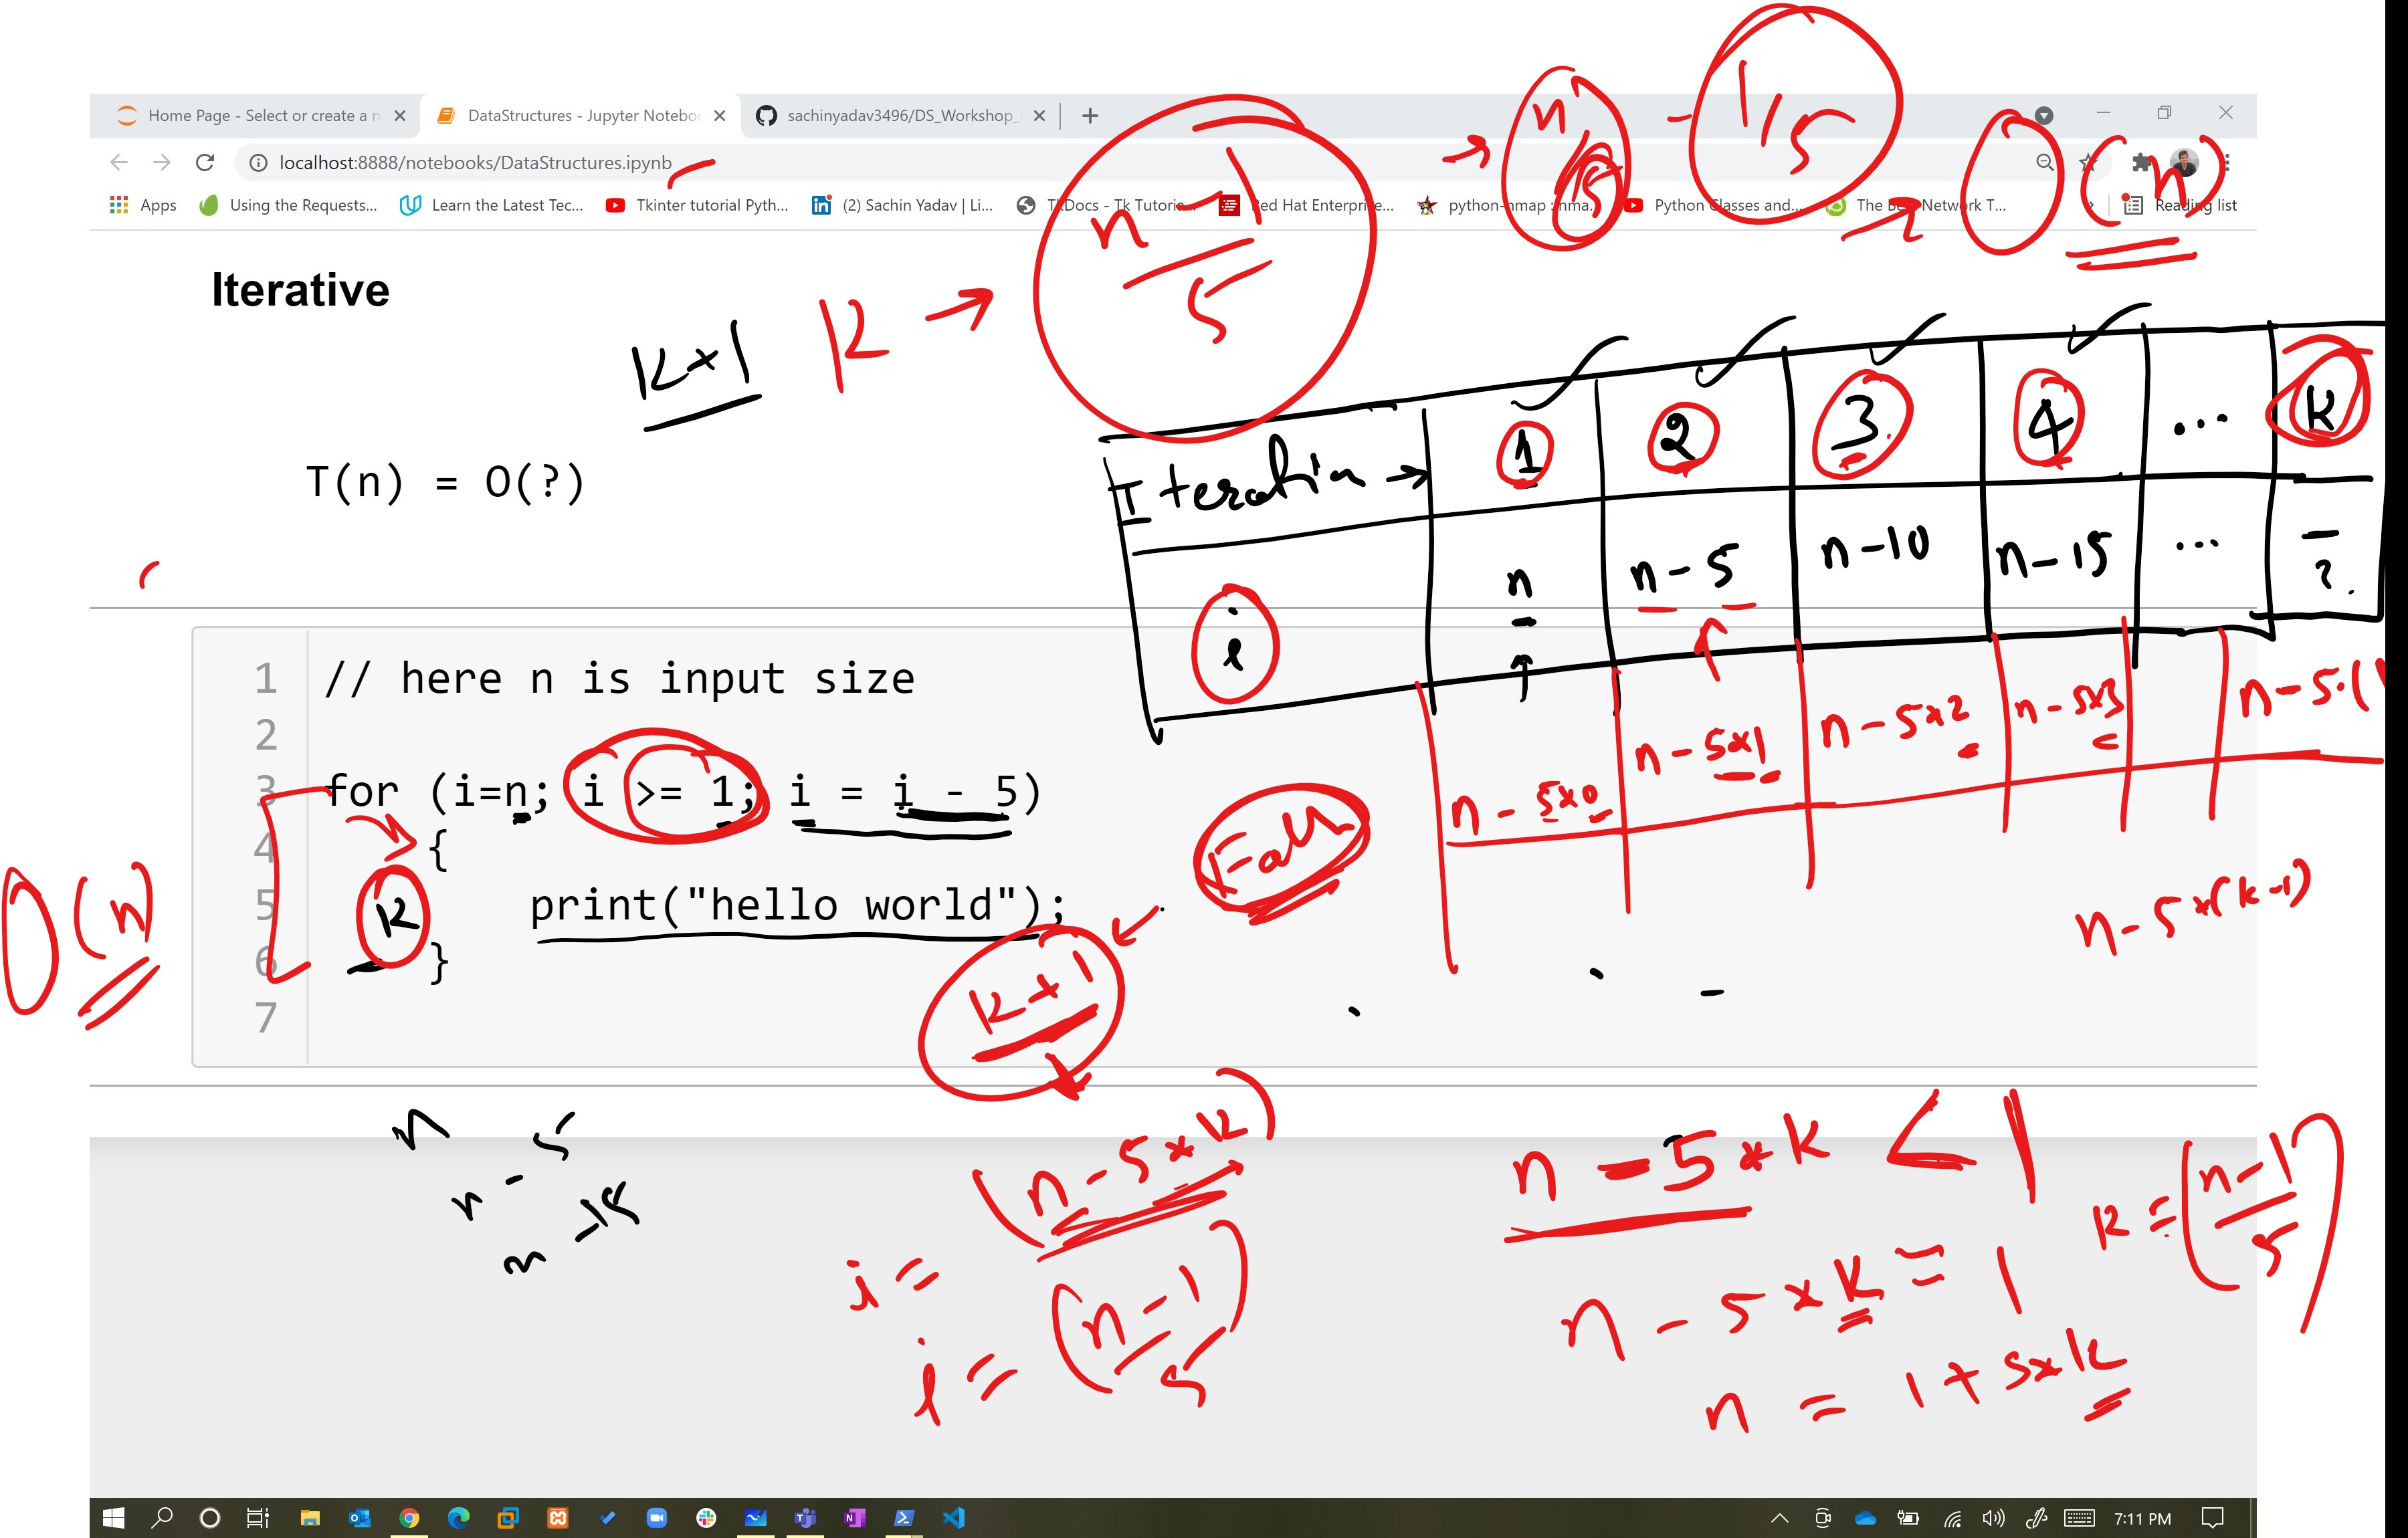 Home Page - Select or create a n
DataStructures - Jupyter Noteboo
sachinyadav3496/DS_Workshop_
localhost:8888/notebooks/DataStructures.ipynb
Apps
Using the Requests...
Learn the Latest Tec...
Tkinter tutorial Pyth...
(2) Sachin Yadav | Li...
TkDocs - Tk Tutoria...
Red Hat Enterprise...
python-nmap : nma...
Python Classes and...
The Best Network T...
Reading list
n/5 - 1/5
→ O(n)
Iterative
K+1
K → n-1
5
T(n) = O(?)
Iteration → 1 2 3 4 ... K
i n n-5 n-10 n-15 ... – ?
n-5x0 n-5x1 n-5x2 n-5x3 n-5.(
n-5x(k-1)
1 // here n is input size
2
3 for (i=n; i >= 1; i = i - 5)
4 {
5 print("hello world");
6 }
7
O(n)
K
K+1
n
n - 5
i = (n-5*K)
i = (n-1)
5
n-5*k < 1
n-5xk = 1
n = 1+5xk
k = (n-1)
5
7:11 PM